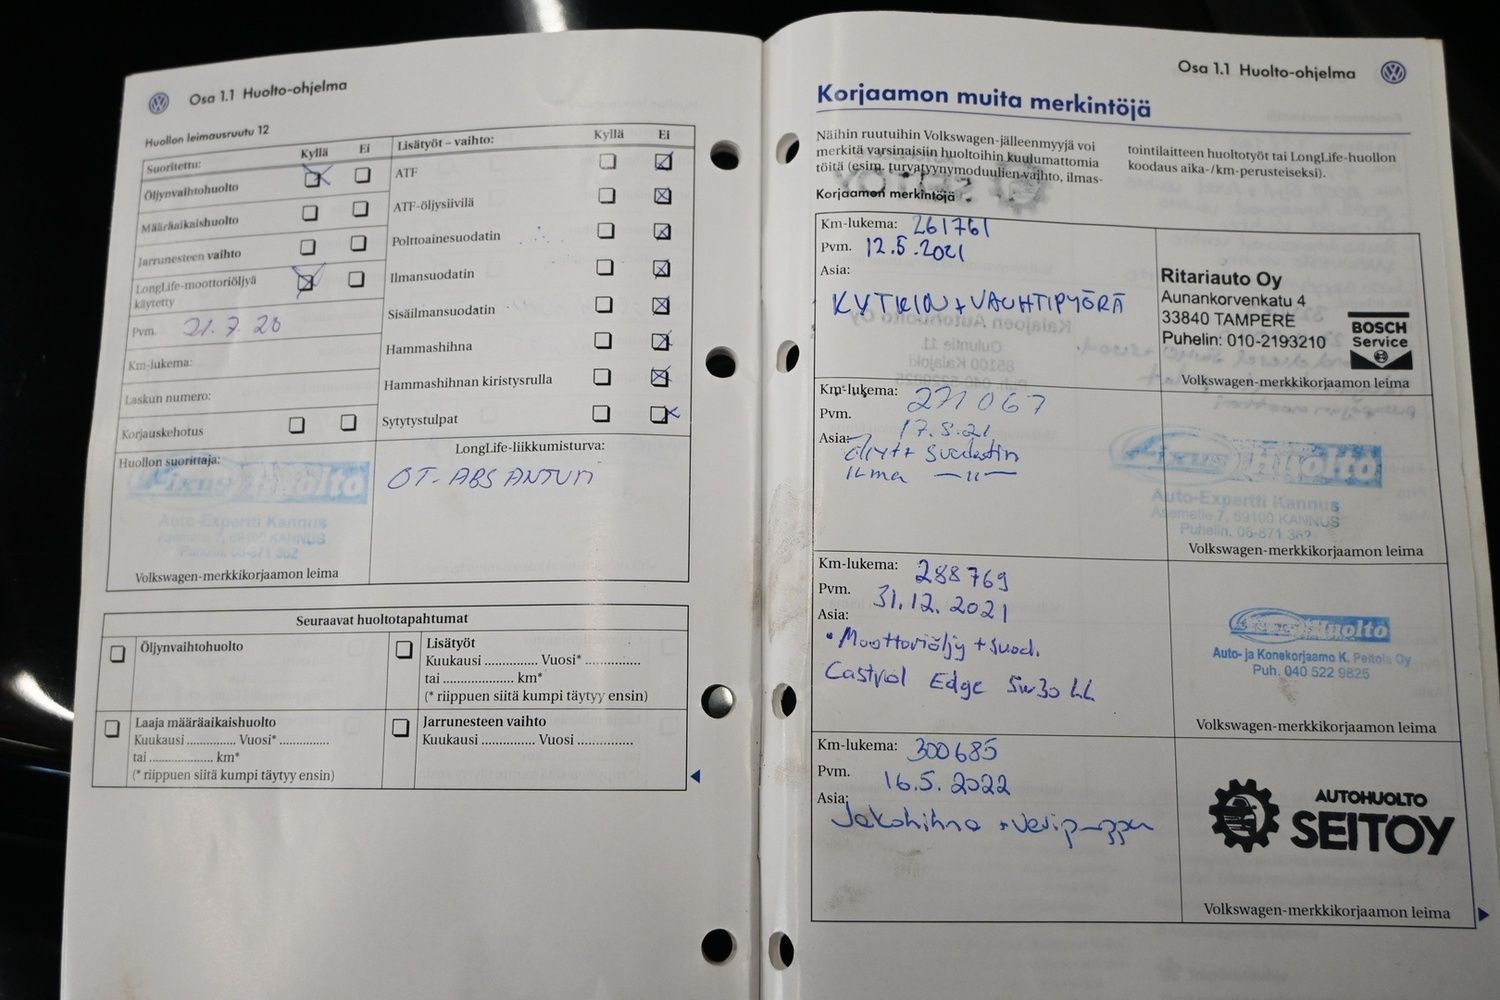 Osa 1.1 Huolto-ohjelma
Huollon leimausruutu 12
Suoritettu: Kyllä Ei
Öljynvaihtohuolto
Määräaikaishuolto
Jarrunesteen vaihto
LongLife-moottoriöljyä
käytetty
Pvm. 21.7.20
Km-lukema:
Laskun numero:
Korjauskehotus
Huollon suorittaja:
Fixus Huolto
Auto-Expertti Kannus
Asematie 7, 69100 KANNUS
Puhelin. 06-871 362
Volkswagen-merkkikorjaamon leima
Lisätyöt – vaihto: Kyllä Ei
ATF
ATF-öljysiivilä
Polttoainesuodatin
Ilmansuodatin
Sisäilmansuodatin
Hammashihna
Hammashihnan kiristysrulla
Sytytystulpat
LongLife-liikkumisturva:
OT- ABS ANTURI
Seuraavat huoltotapahtumat
Öljynvaihtohuolto
Lisätyöt
Kuukausi .............. Vuosi* ..............
tai .................... km*
(* riippuen siitä kumpi täytyy ensin)
Laaja määräaikaishuolto
Kuukausi .............. Vuosi* ..............
tai .................... km*
(* riippuen siitä kumpi täytyy ensin)
Jarrunesteen vaihto
Kuukausi .............. Vuosi ..............
Osa 1.1 Huolto-ohjelma
Korjaamon muita merkintöjä
Näihin ruutuihin Volkswagen-jälleenmyyjä voi
merkitä varsinaisiin huoltoihin kuulumattomia
töitä (esim. turvatyynymoduulien vaihto, ilmas-
tointilaitteen huoltotyöt tai LongLife-huollon
koodaus aika-/km-perusteiseksi).
Korjaamon merkintöjä
Km-lukema: 261761
Pvm. 12.5.2021
Asia:
KYTKIN + VAUHTIPYÖRÄ
Ritariauto Oy
Aunankorvenkatu 4
33840 TAMPERE
Puhelin: 010-2193210
BOSCH
Service
Volkswagen-merkkikorjaamon leima
Km-lukema: 271067
Pvm. 17.8.21
Asia:
Öljyt + Suodatin
Ilma —"—
Fixus Huolto
Auto-Expertti Kannus
Asematie 7, 69100 KANNUS
Puhelin. 06-871 362
Volkswagen-merkkikorjaamon leima
Km-lukema: 288769
Pvm. 31.12.2021
Asia:
• Moottoriöljy + suod.
Castrol Edge 5w30 LL
Fixus Huolto
Auto- ja Konekorjaamo K. Peltola Oy
Puh. 040 522 9825
Volkswagen-merkkikorjaamon leima
Km-lukema: 300685
Pvm. 16.5.2022
Asia:
Jakohihna + vesipumppu
AUTOHUOLTO
SEITOY
Volkswagen-merkkikorjaamon leima